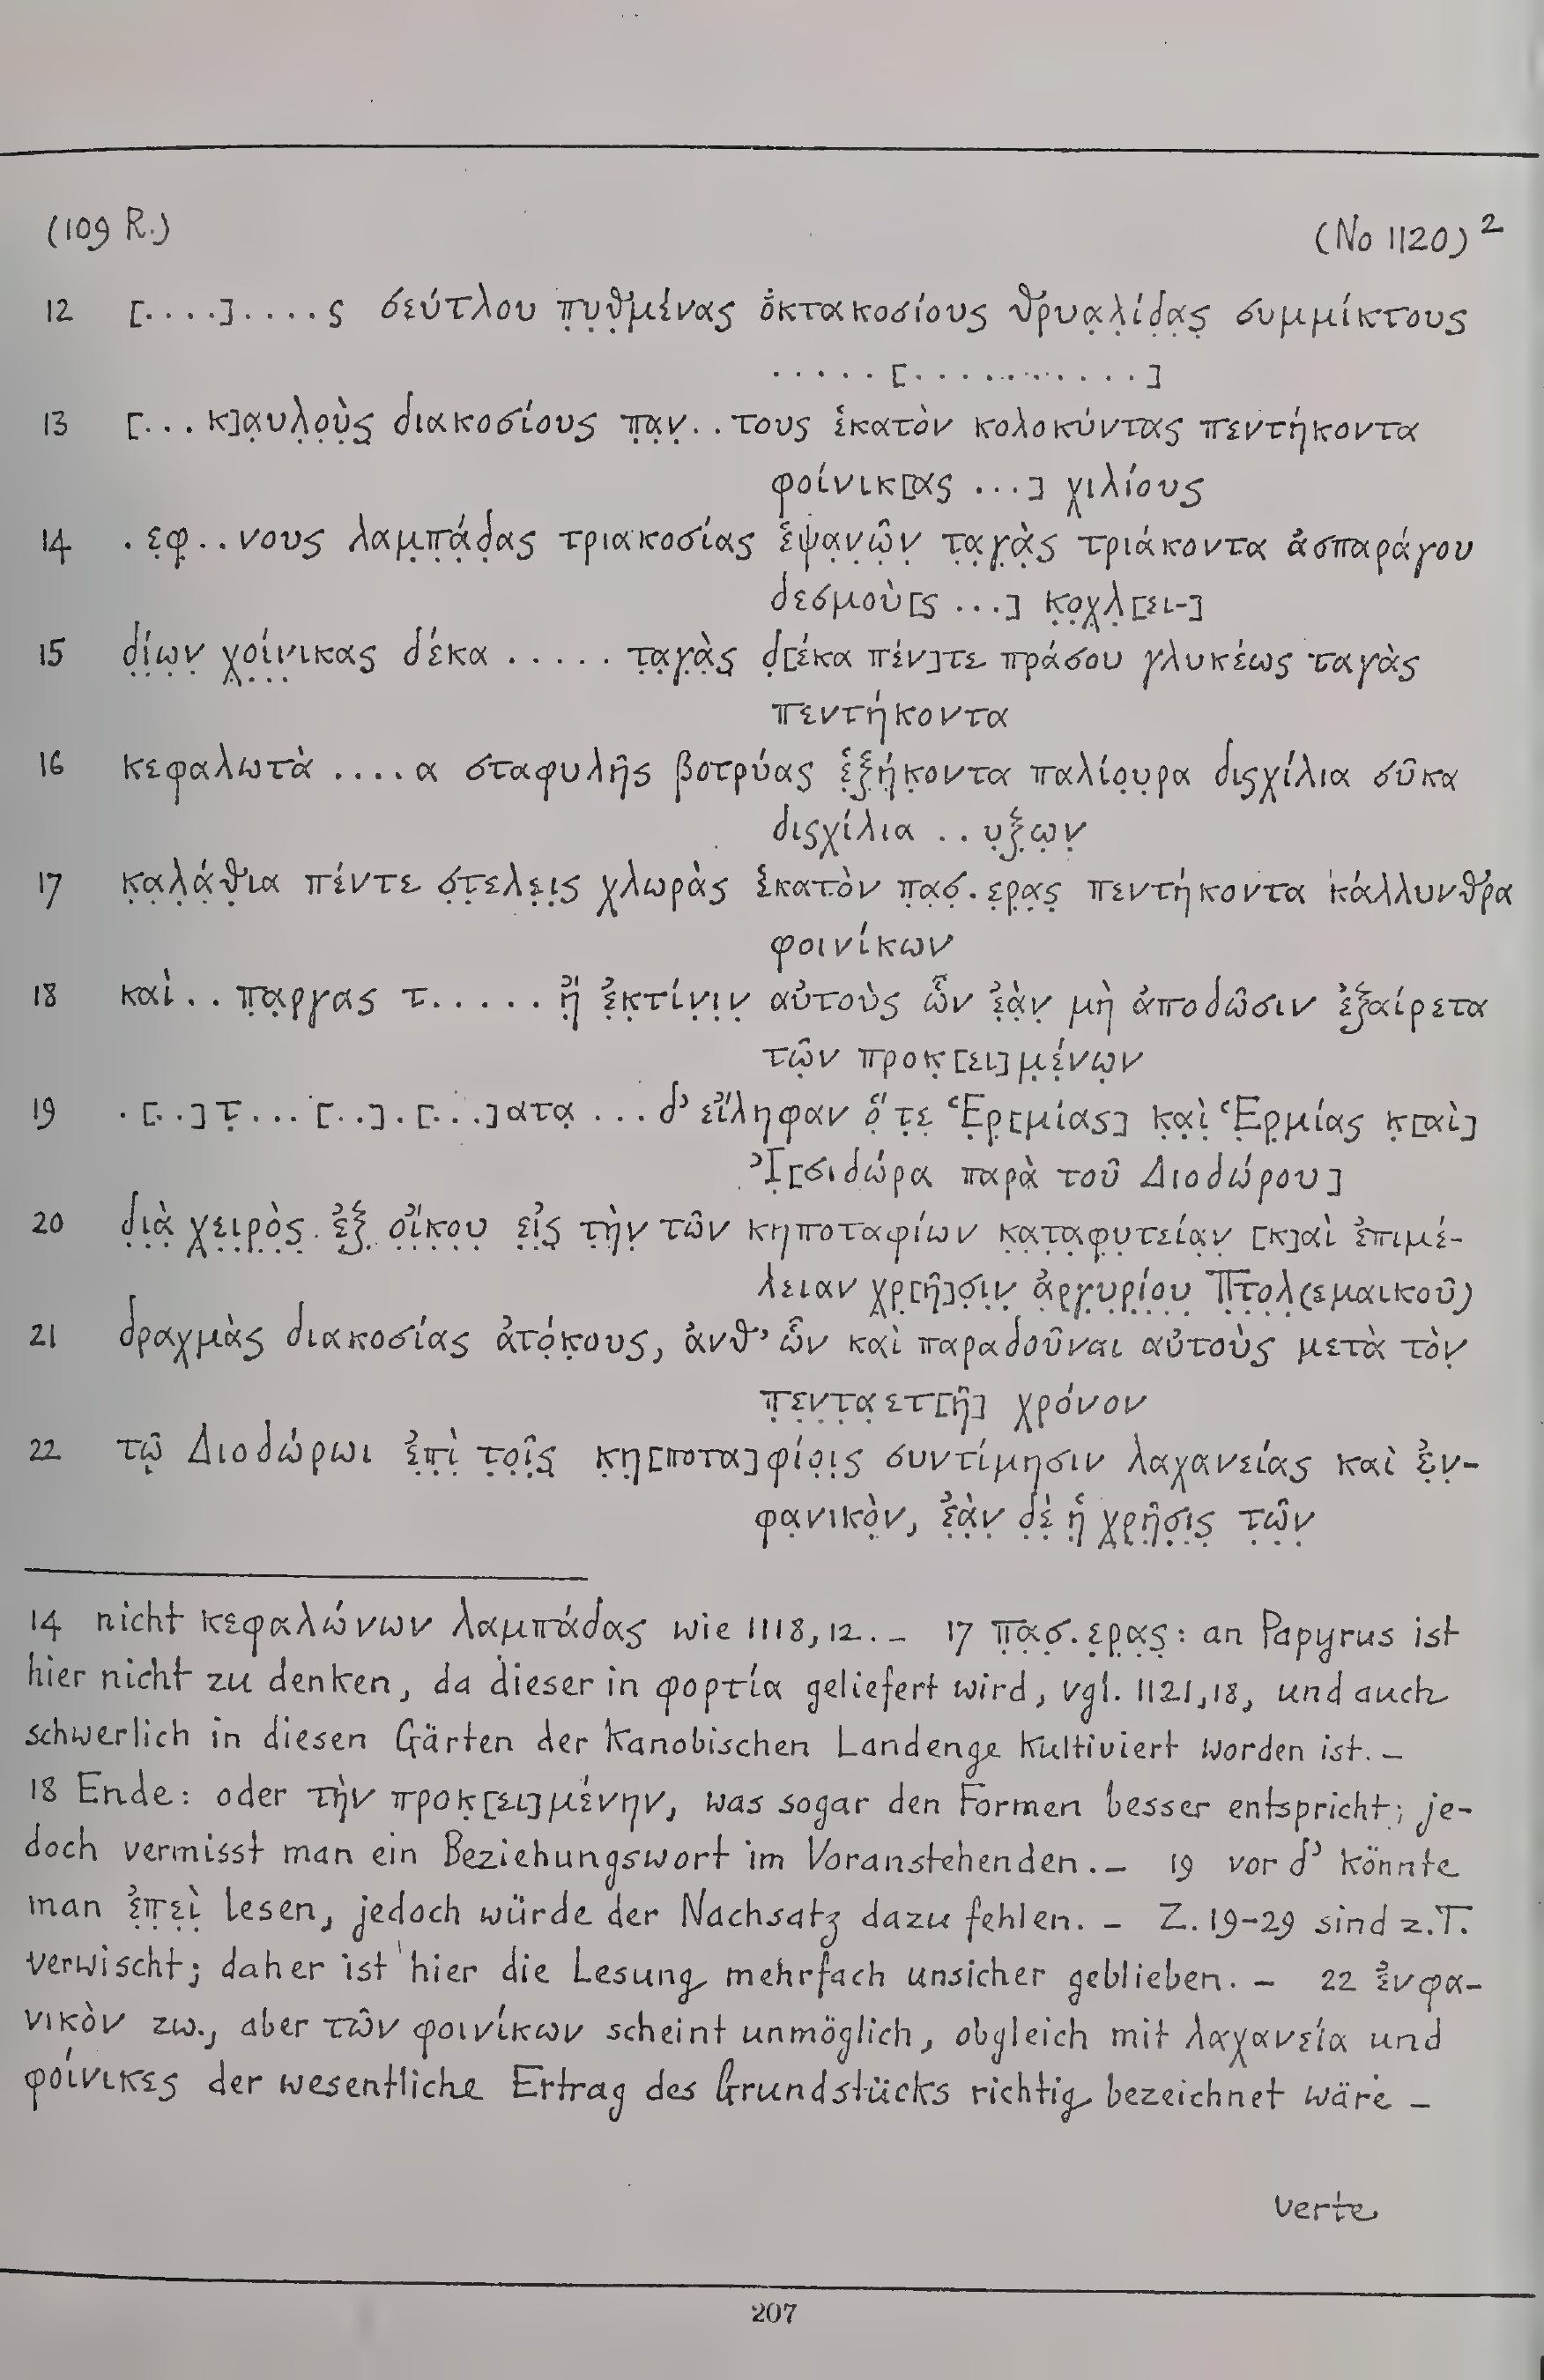 (109 R.)
(No 1120)²
12 [....]....ς σεύτλου π̣υ̣θ̣μένας ὀκτακοσίους θρυα̣λ̣ί̣δ̣α̣ς̣ συμμίκτους
.....[...........]
13 [... κ]α̣υλ̣ο̣ὺ̣ς̣ διακοσίους π̣α̣ν̣..τους ἑκατὸν κολοκύντας πεντήκοντα
φοίνικ[ας ...] χιλίους
14 .ε̣φ̣..νους λαμ̣π̣ά̣δ̣ας τριακοσίας ἑψα̣ν̣ῶ̣ν̣ τ̣α̣γ̣ὰ̣ς τριάκοντα ἀσπαράγου
δεσμοὺ[ς ...] κ̣ο̣χ̣λ̣[ει-]
15 δ̣ί̣ω̣ν̣ χ̣ο̣ί̣ν̣ικας δέκα ..... τ̣α̣γ̣ὰ̣ς̣ δ̣[έκα πέν]τε πράσου γλυκέως ταγὰς
πεντήκοντα
16 κεφαλωτὰ ....α σταφυλῆς βοτρύας ἑ̣ξ̣ή̣κ̣οντα παλίο̣υ̣ρα διςχίλια σῦκα
διςχίλια ..υ̣ξ̣ω̣ν̣
17 κ̣α̣λ̣ά̣θ̣ια πέντε σ̣τ̣ελε̣ι̣ς χλωρὰς ἑκατὸν π̣α̣σ̣.ε̣ρ̣α̣ς̣ πεντήκοντα κάλλυνθρα
φοινίκων
18 καὶ..π̣α̣ργας τ.....ἢ̣ ἐ̣κ̣τίν̣ι̣ν̣ αὐτοὺς ὧν ἐ̣ὰ̣ν̣ μὴ ἀποδῶσιν ἐξαίρετα
τῶ̣ν προκ̣[ει]μ̣έ̣νω̣ν
19 .[..]τ̣...[..].[...]ατα̣...δ’ εἴληφαν ὅ̣ τ̣ε̣ Ἑ̣ρ̣[μίας] κ̣α̣ὶ̣ Ἑ̣ρ̣μίας κ̣[αὶ]
Ἰ̣[σιδώρα παρὰ τοῦ Διοδώρου]
20 δ̣ι̣ὰ̣ χ̣ε̣ι̣ρ̣ὸ̣ς̣ ἐ̣ξ̣ ο̣ἴ̣κ̣ο̣υ̣ ε̣ἰ̣ς̣ τ̣ὴ̣ν̣ τῶν κηποταφίων κ̣α̣τ̣α̣φ̣υ̣τεία̣ν̣ [κ]αὶ ἐπιμέ-
λειαν χρ̣[ῆ]σ̣ι̣ν̣ ἀ̣ρ̣γ̣υ̣ρ̣ί̣ο̣υ̣ Π̣τ̣ο̣λ̣(εμαικοῦ)
21 δραχμὰς διακοσίας ἀτό̣κ̣ους, ἀνθ’ ὧν καὶ παραδοῦναι αὐτοὺς μετὰ τὸν̣
π̣ε̣ν̣τ̣α̣ετ[ῆ] χρόνον
22 τῷ Διοδώρωι ἐ̣π̣ὶ̣ τ̣ο̣ῖ̣ς̣ κ̣η̣[ποτα]φίο̣ι̣ς συντίμησιν λαχανείας καὶ ἐ̣ν̣-
φα̣νικὸ̣ν, ἐ̣ὰ̣ν̣ δ̣ὲ̣ ἡ̣ χ̣ρ̣ῆ̣σ̣ι̣ς̣ τ̣ῶ̣ν̣
14 nicht κεφαλώνων λαμπάδας wie 1118,12. – 17 π̣α̣σ̣.ε̣ρ̣α̣ς̣: an Papyrus ist
hier nicht zu denken, da dieser in φορτία geliefert wird, vgl. 1121,18, und auch
schwerlich in diesen Gärten der Kanobischen Landenge kultiviert worden ist. –
18 Ende: oder τὴν προκ̣[ει]μένην, was sogar den Formen besser entspricht; je-
doch vermisst man ein Beziehungswort im Voranstehenden. – 19 vor δ’ könnte
man ἐ̣π̣ε̣ὶ̣ lesen, jedoch würde der Nachsatz dazu fehlen. – Z. 19-29 sind z.T.
verwischt; daher ist hier die Lesung mehrfach unsicher geblieben. – 22 ἐ̣νφα-
νικὸν zw., aber τῶν φοινίκων scheint unmöglich, obgleich mit λαχανεία und
φοίνικες der wesentliche Ertrag des Grundstücks richtig bezeichnet wäre –
verte
207